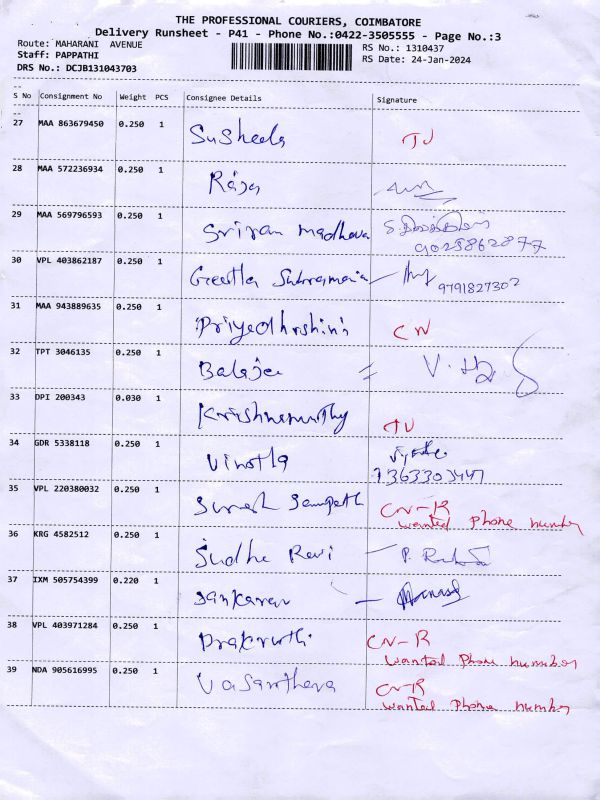 THE PROFESSIONAL COURIERS, COIMBATORE
Delivery Runsheet - P41 - Phone No.:0422-3505555 - Page No.:3
Route: MAHARANI AVENUE RS No.: 1310437
Staff: PAPPATHI RS Date: 24-Jan-2024
DRS No.: DCJB131043703
S No Consignment No Weight PCS Consignee Details Signature
27 MAA 863679450 0.250 1 Susheela
28 MAA 572236934 0.250 1 Raja
29 MAA 569796593 0.250 1 Sriram madhava
9025862877
30 VPL 403862187 0.250 1 Geetha Subramania
9791827302
31 MAA 943889635 0.250 1 Priyedhrshini CN
32 TPT 3046135 0.250 1 Balaje V.
33 DPI 200343 0.030 1 Krishnamurthy
34 GDR 5338118 0.250 1 Vinotha
35 VPL 220380032 0.250 1 Suresh Sampath CN-R
wanted phone number
36 KRG 4582512 0.250 1 Sudha Ravi P.
37 IXM 505754399 0.220 1 Sankaran
38 VPL 403971284 0.250 1 Prakruthi CN-R
wanted phone number
39 NDA 905616995 0.250 1 Vasantheva CN-R
wanted phone number